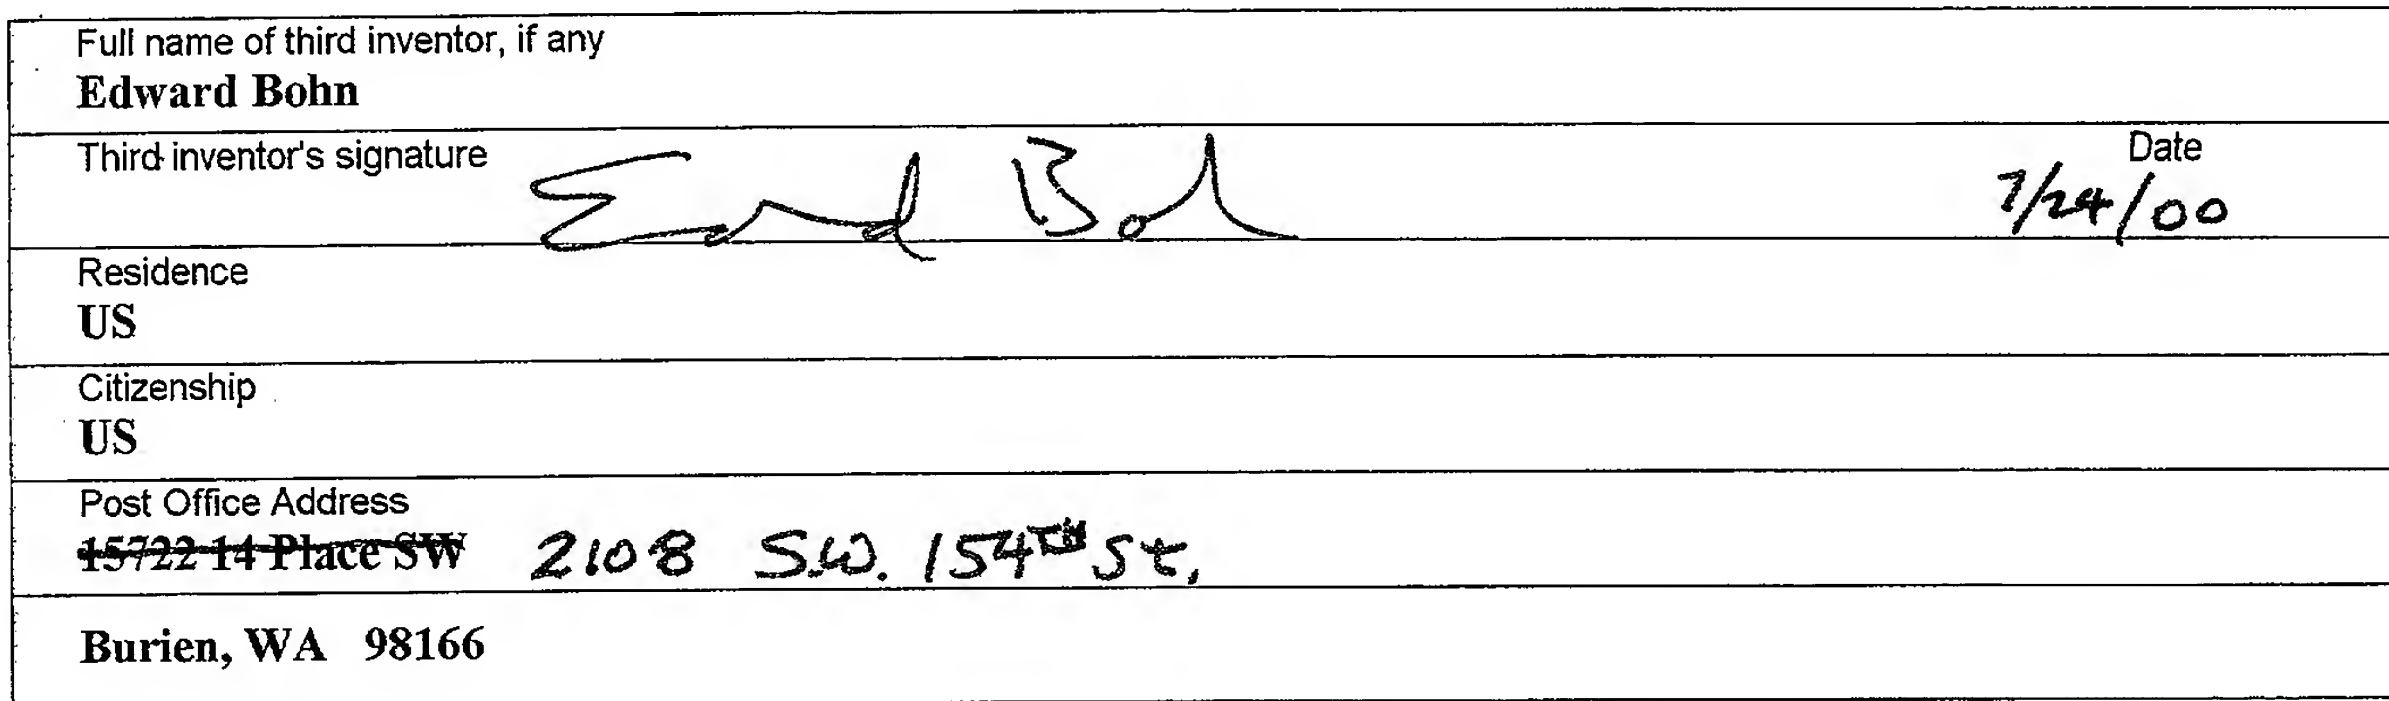 Full name of third inventor, if any
Edward Bohn
Third inventor's signature Date
7/24/00
Residence
US
Citizenship
US
Post Office Address
15722 14 Place SW 2108 S.W. 154TH St.
Burien, WA 98166